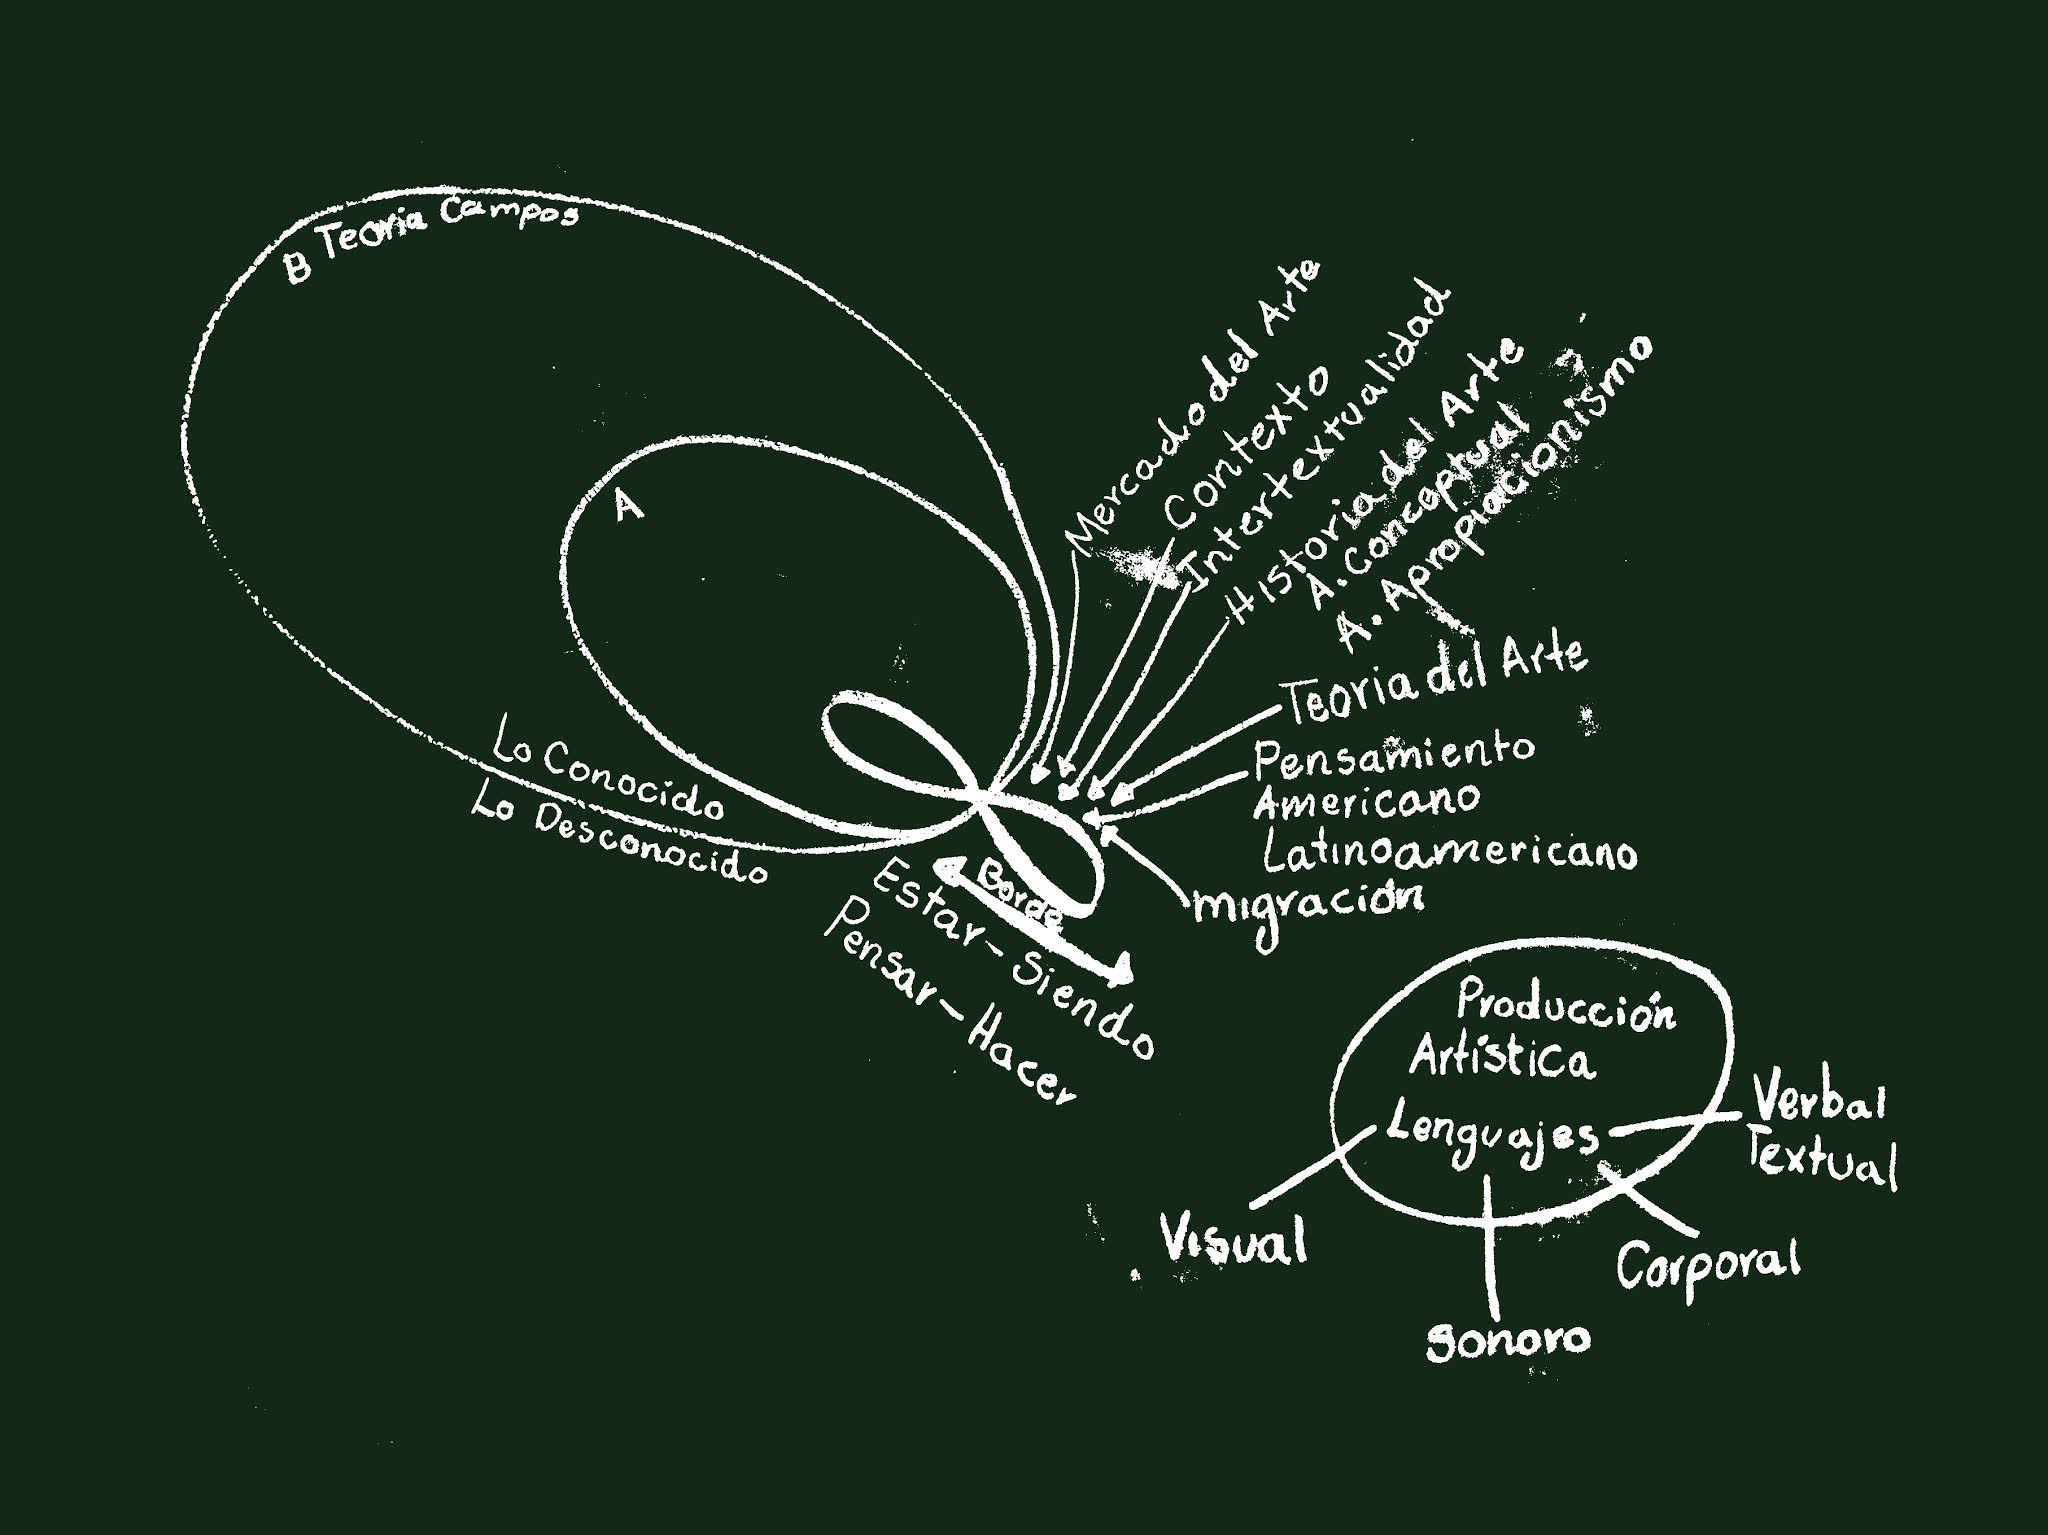 B Teoria Campos
A
Lo Conocido
Lo Desconocido
Mercado del Arte
Contexto
Intertextualidad
Historia del Arte
A. Conceptual
A. Apropiacionismo
Teoria del Arte
Pensamiento
Americano
Latinoamericano
Migración
Borde
Estar-Siendo
Pensar-Hacer
Producción
Artística
Lenguajes
Verbal
Textual
Visual
Corporal
Sonoro